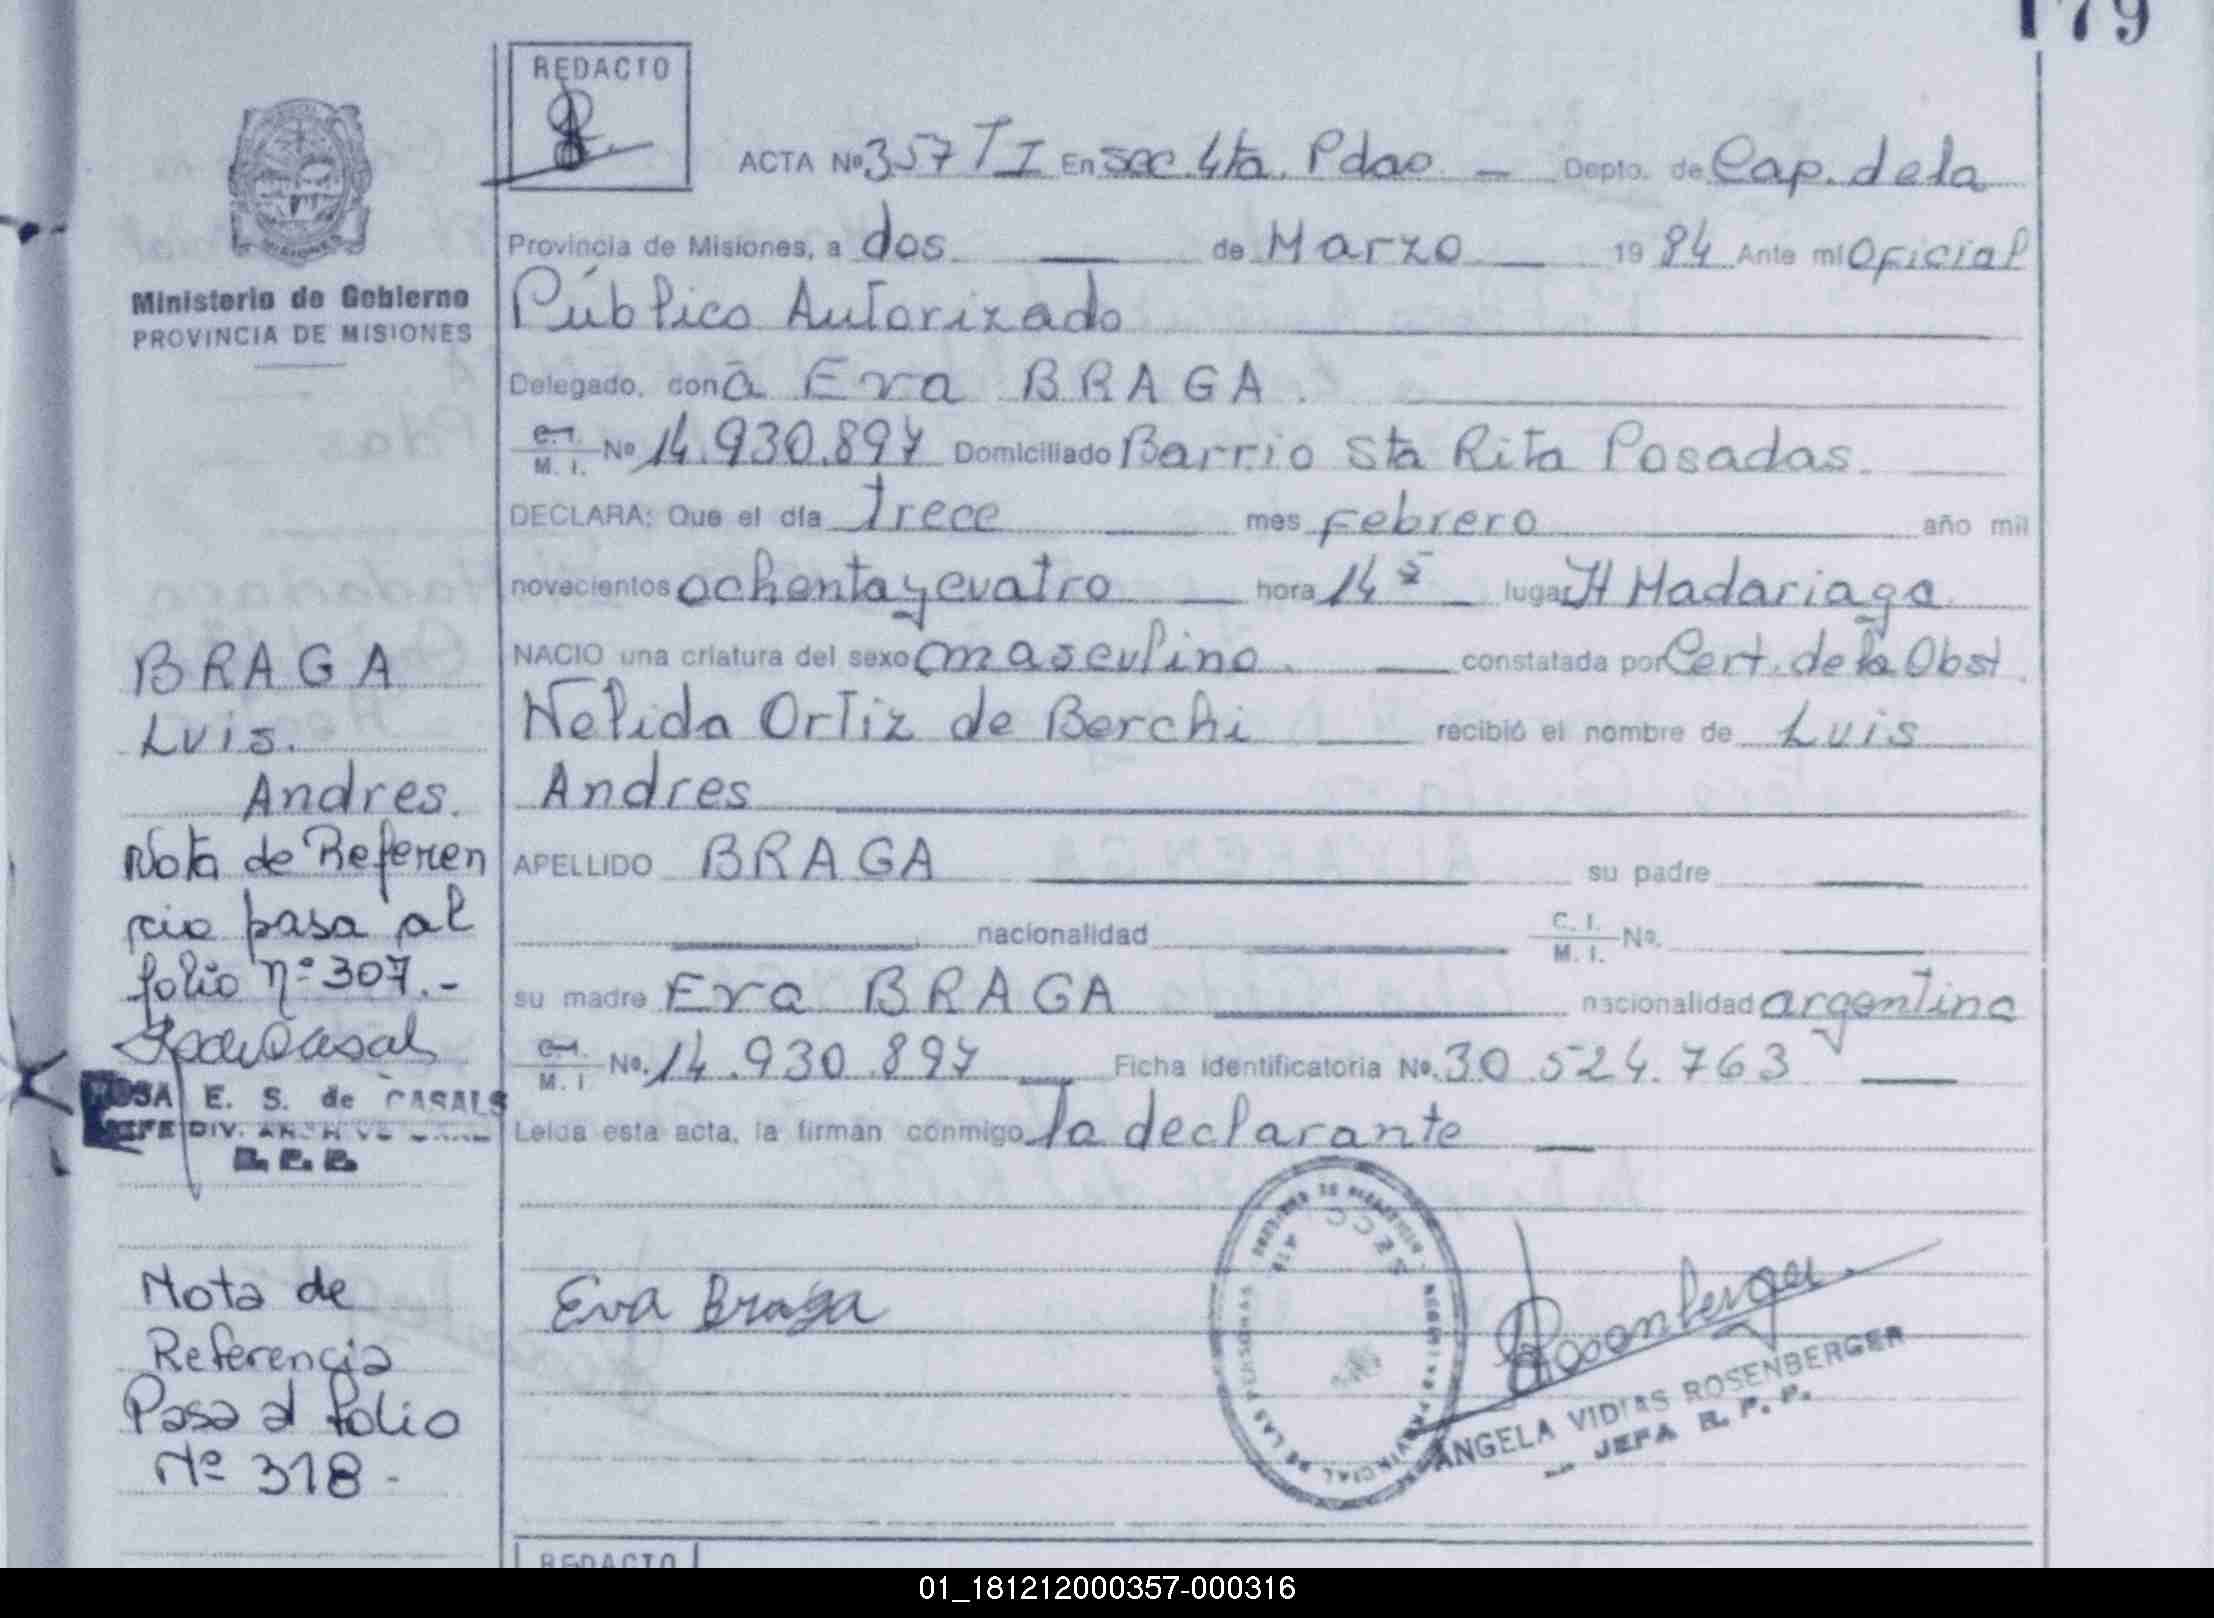 179
REDACTO
ACTA Nº 357 T I En sec. 4ta. Pdas. — Depto. de Cap. de la
Provincia de Misiones, a dos — de Marzo — 1984 Ante mi Oficial
Ministerio de Gobierno
PROVINCIA DE MISIONES
Público Autorizado
Delegado, con a Eva BRAGA.
C.I. M. I. Nº 14.930.897 Domiciliado Barrio Sta Rita Posadas.
DECLARA: Que el día trece mes Febrero año mil
novecientos ochenta y cuatro — hora 14 lugar H Madariaga
NACIO una criatura del sexo masculino. — constatada por Cert. de la Obst.
Nelida Ortiz de Berchi — recibió el nombre de Luis
Andres
APELLIDO BRAGA su padre —
— nacionalidad — C. I. M. I. Nº. —
su madre Eva BRAGA nacionalidad argentina
C.I. M. I Nº. 14.930.897 — Ficha identificatoria Nº. 30.524.763 —
Leida esta acta, la firman conmigo la declarante —
BRAGA
Luis.
Andres.
Nota de Referen
cia pasa al
folio nº 307.-
ROSA E. S. de CASALS
JEFE DIV.
Nota de
Referencia
Pasa al folio
Nº 318-
Eva Braga
SECC 4ta
REGISTRO PROVINCIAL DE LAS PERSONAS
Rosenberger
ANGELA VIDIAS ROSENBERGER
JEFA R. P. P.
REDACTO
01_181212000357-000316